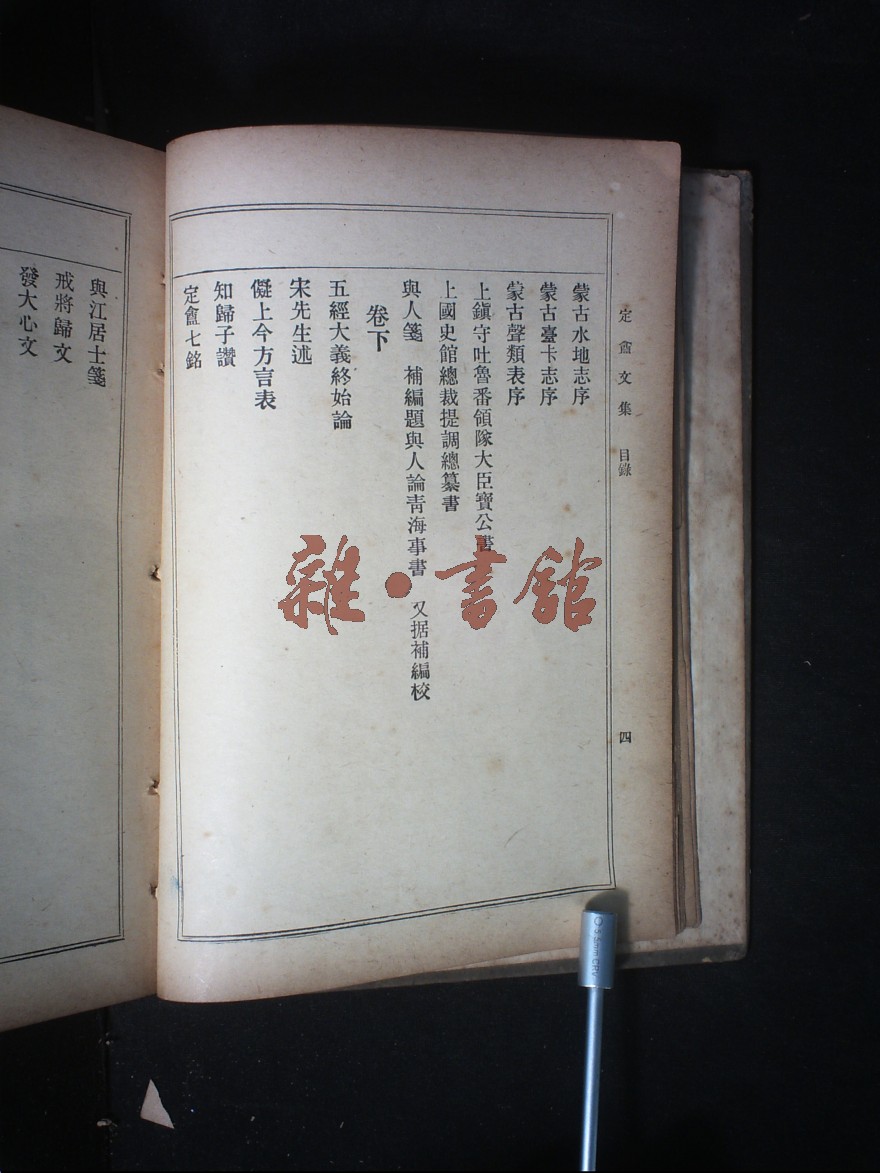 定盦文集　目錄
四
蒙古水地志序
蒙古臺卡志序
蒙古聲類表序
上鎭守吐魯番領隊大臣寶公書
上國史館總裁提調總纂書
與人箋　補編題與人論靑海事書　又据補編校
卷下
五經大義終始論
宋先生述
儗上今方言表
知歸子讚
定盦七銘
與江居士箋
戒將歸文
發大心文
雜·書館
5.5mm CRV